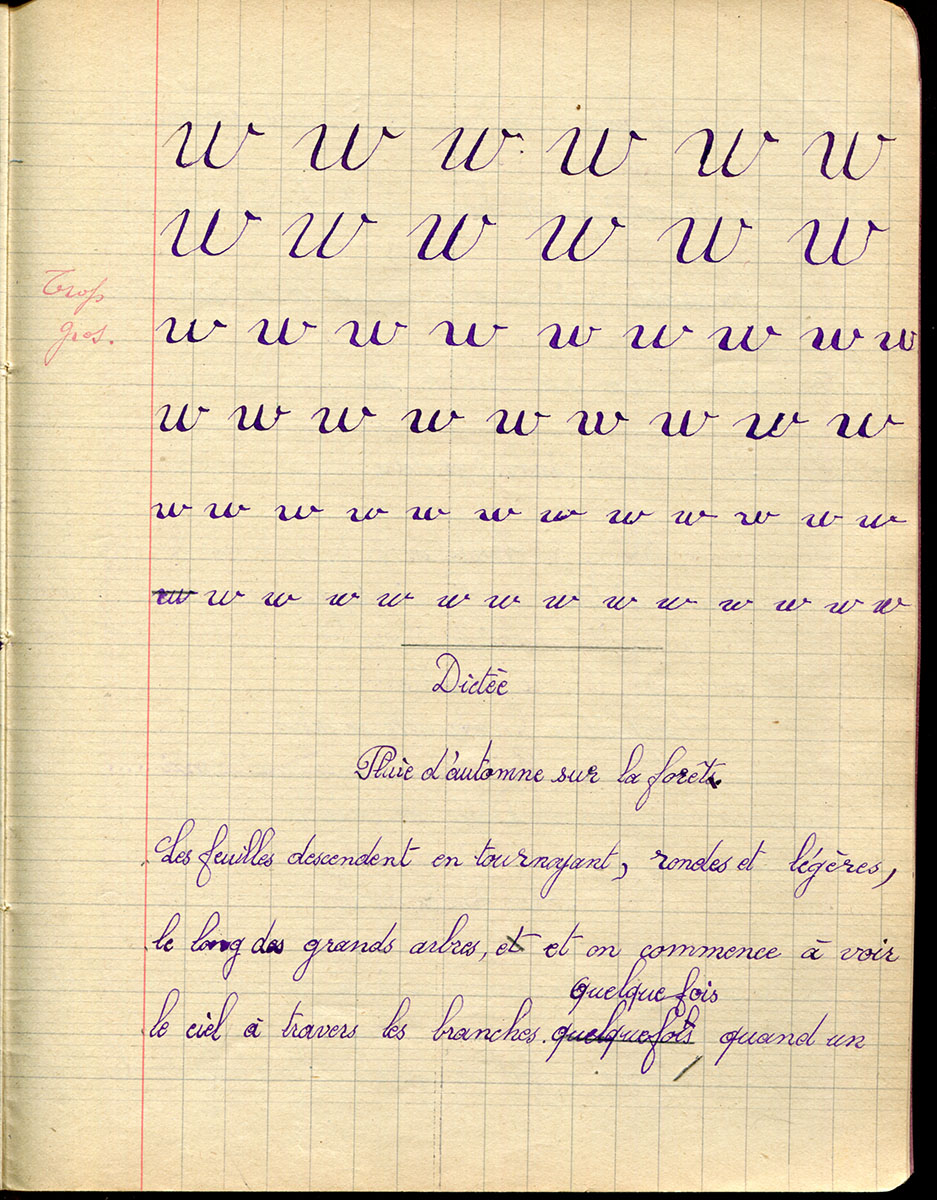 w w w w w w
w w w w w w
Trop
gros.
w w w w w w w w w
w w w w w w w w w
w w w w w w w w w w w w
w w w w w w w w w w w w w w
Dictée
Pluie d'automne sur la forêt.
Les feuilles descendent en tournoyant, rondes et légères,
le long des grands arbres, et et on commence à voir
quelque fois
le ciel à travers les branches. quelquefois quand un